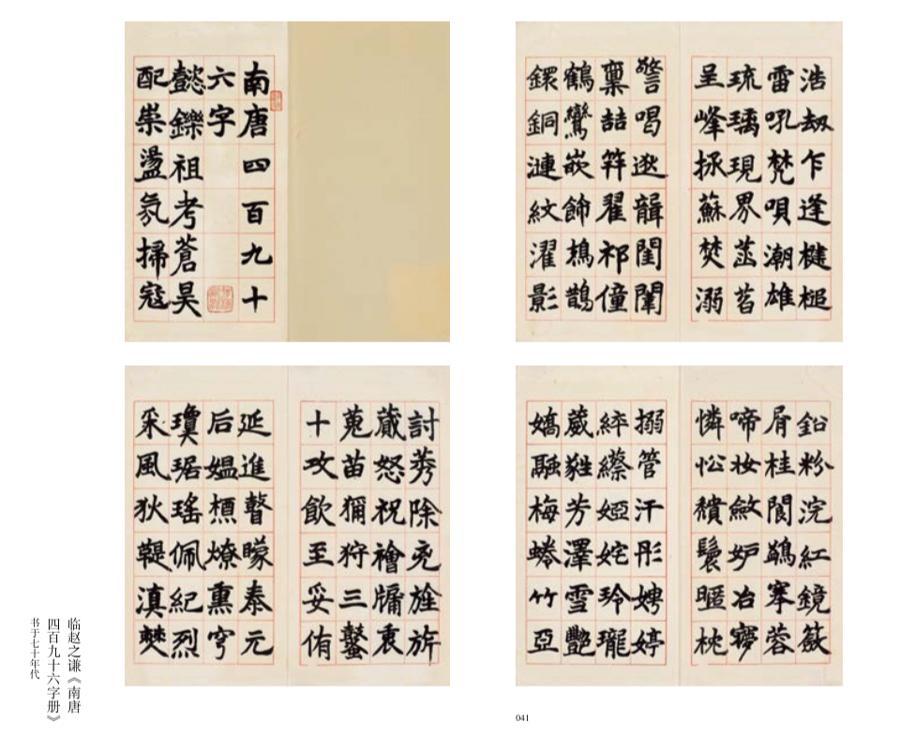 南唐四百九十
六字
懿鑠祖考蒼昊
配崇盪氛掃寇
浩劫乍逢楗槌
雷吼梵唄潮雄
琉璃現界菡萏
呈峰拯蘇焚溺
警喝邀韻閨闈
稟喆笄翟祁僮
鶴鸞嵌飾鵲
鐶銅漣紋濯影
討莠除兖旌旂
蕆怒祝禬牖衷
蒐苗獮狩三鼇
十攻飲至妥侑
延進瞽矇泰元
后媼槱燎熏穹
瓊琚瑤佩紀烈
采風狄鞮滇僰
鉛粉浣紅鏡奩
屑桂閬鷁搴蓉
啼妝斂妒冶
憐忪鬒鬟匿枕
搦管汗彤娉婷
綷縩婭姹玲瓏
葳蕤芳澤雪艷
嬌融梅蜷竹亞
临赵之谦《南唐
四百九十六字册》
书于七十年代
041